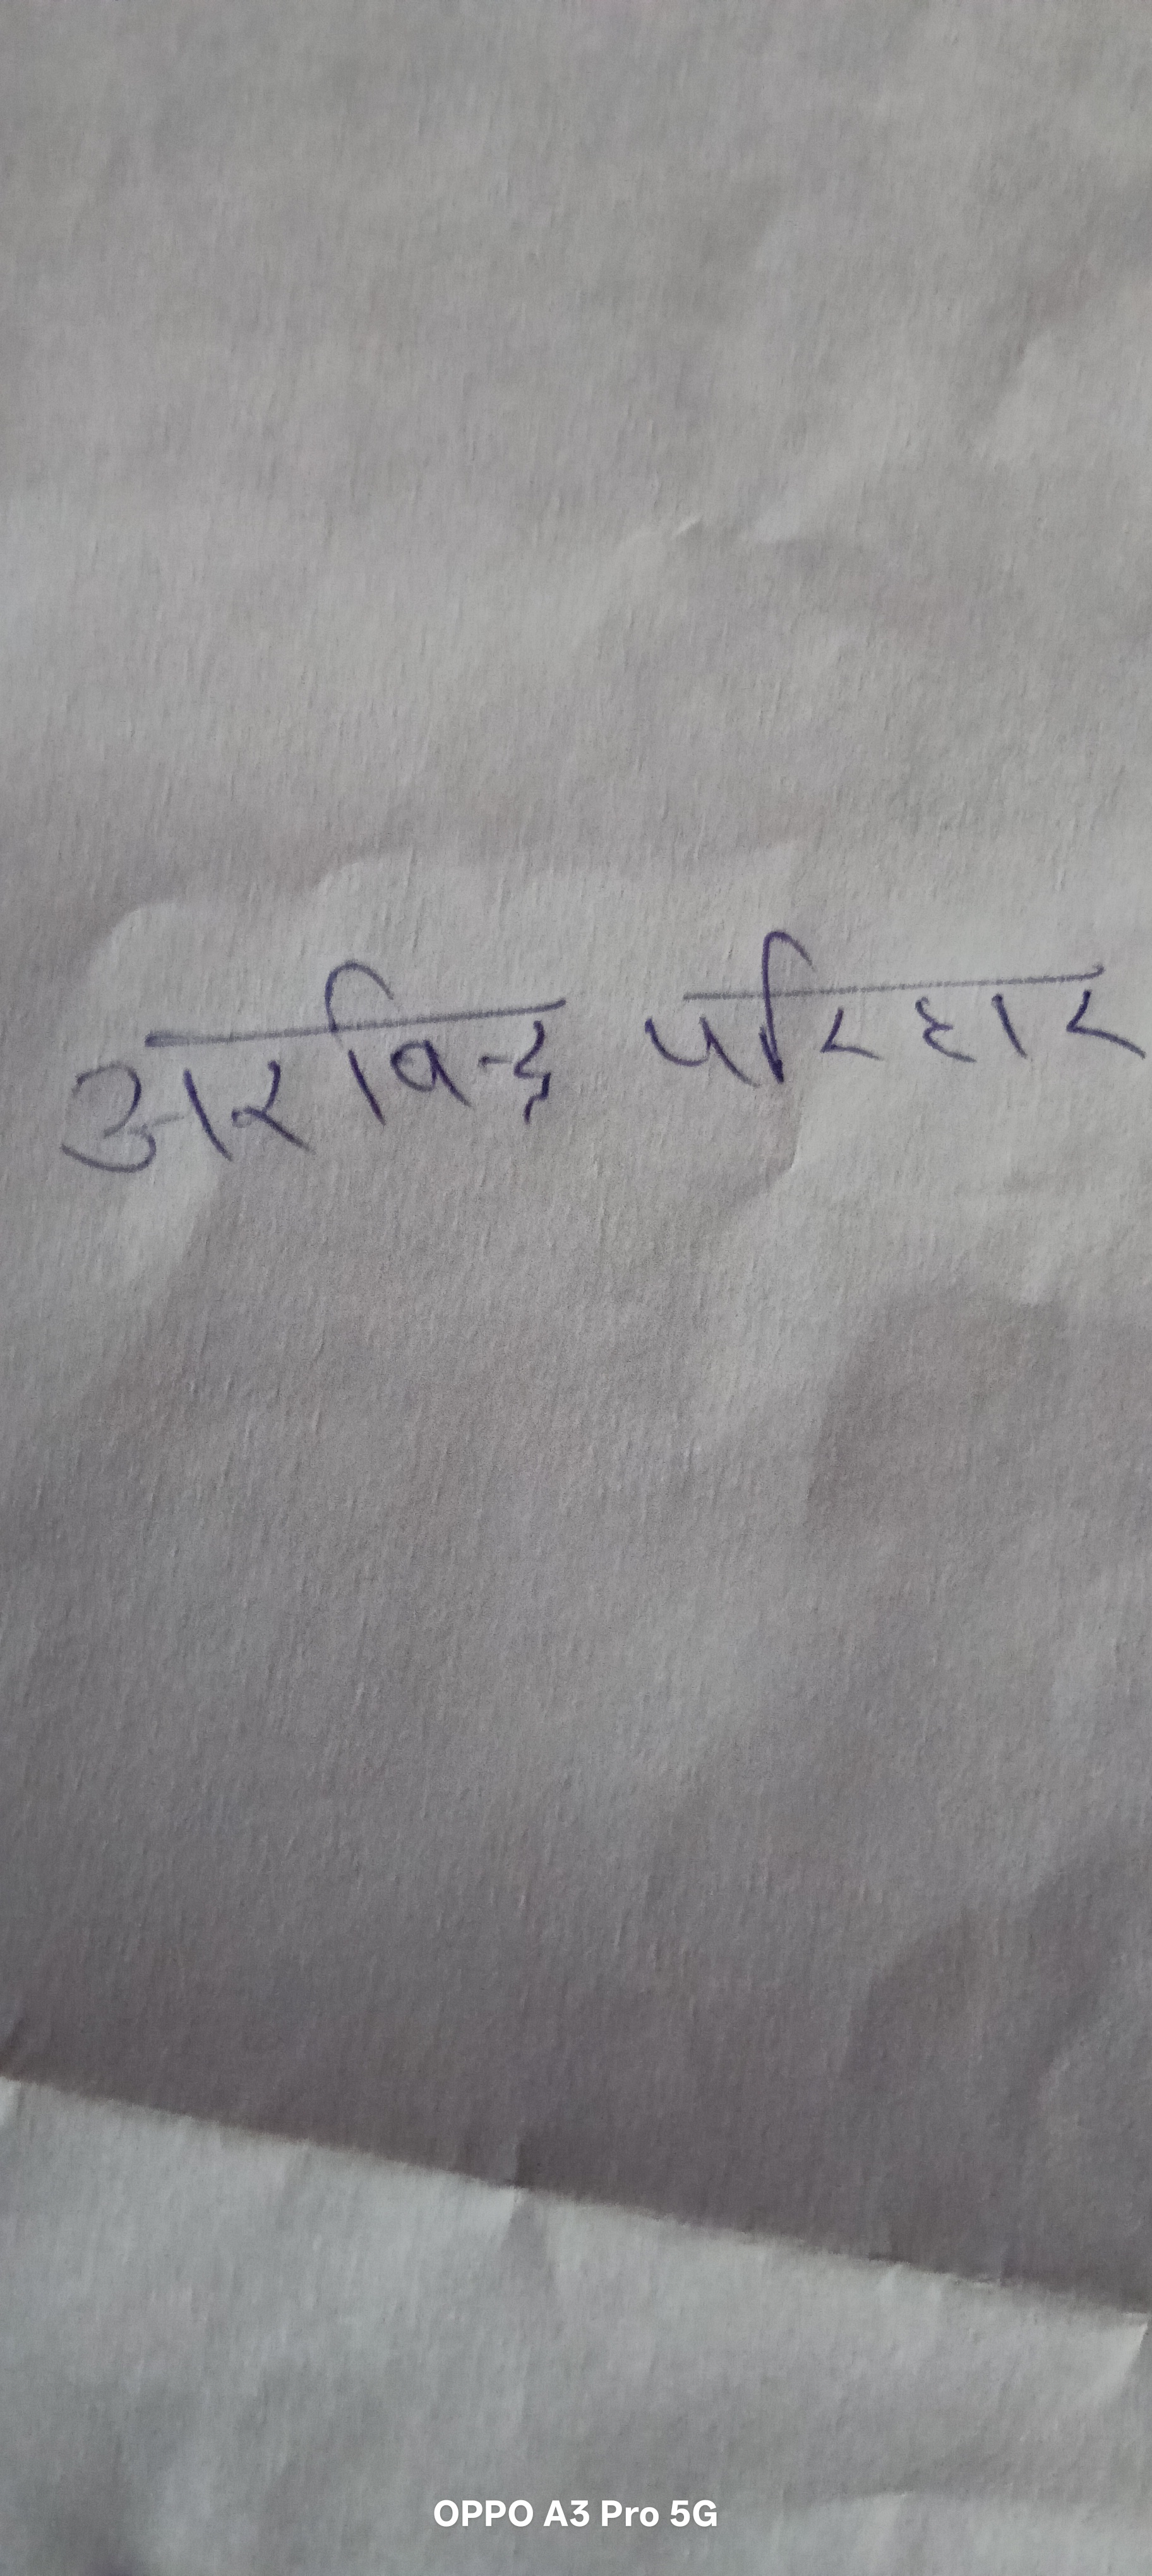 अरविन्द्र परिहार
OPPO A3 Pro 5G